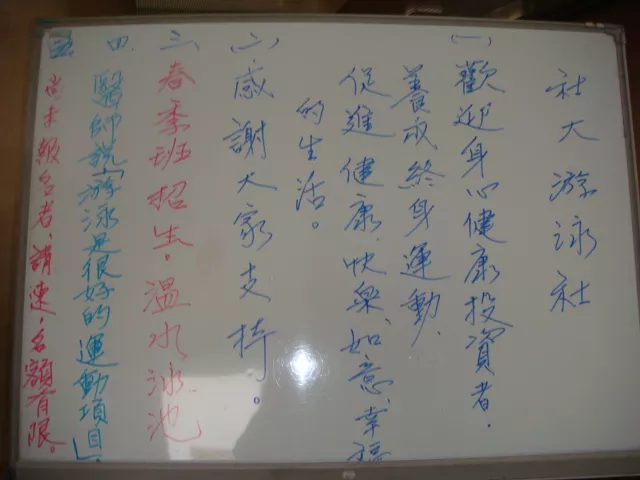 社大游泳社
(一)歡迎身心健康投資者.
養成終身運動、
促進健康.快樂、如意、幸福
的生活。
(二)感謝大家支持。
三、春季班招生。溫水泳池
四.醫師說「游泳是很好的運動項目」.
五.尚未報名者、請速,名額有限。